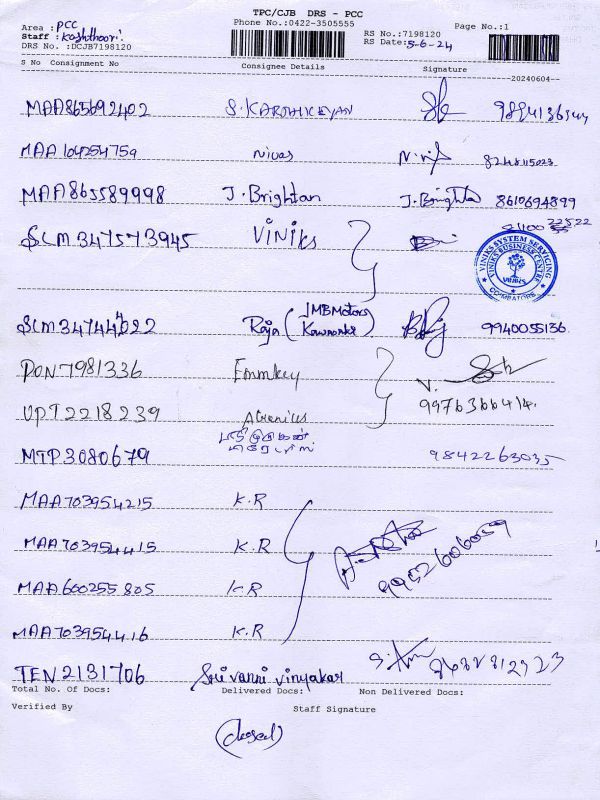 TPC/CJB DRS - PCC
Area : PCC
Phone No.:0422-3505555
Page No.:1
Staff : Kashthoori.
RS No.:7198120
DRS No. :DCJB7198120
RS Date:5-6-24
S No Consignment No Consignee Details Signature
20240604
MAA865692402 S.KARTHICKEYAN
MAA104254759 Nivas 8248115023
MAA865589998 J.Brightan J.Brighta 8610694899
SLM347573945 Viniks
VINIKS SYSTEM SERVICING
VINIKS BUSINESS CENTRE
VINIKS
COIMBATORE
Raja (JMB Motors 9940055136
PON7981336 Emmkey
UPT2218239 9976366414.
MTP3080679 9842263035
MAA703954215 K.R
MAA703954415 K.R 9952606059
MAA600255805 K.R
MAA703954416 K.R
TEN2131706 Sri vanni vinyakar
Total No. Of Docs: Delivered Docs: Non Delivered Docs:
Verified By Staff Signature
(closed)